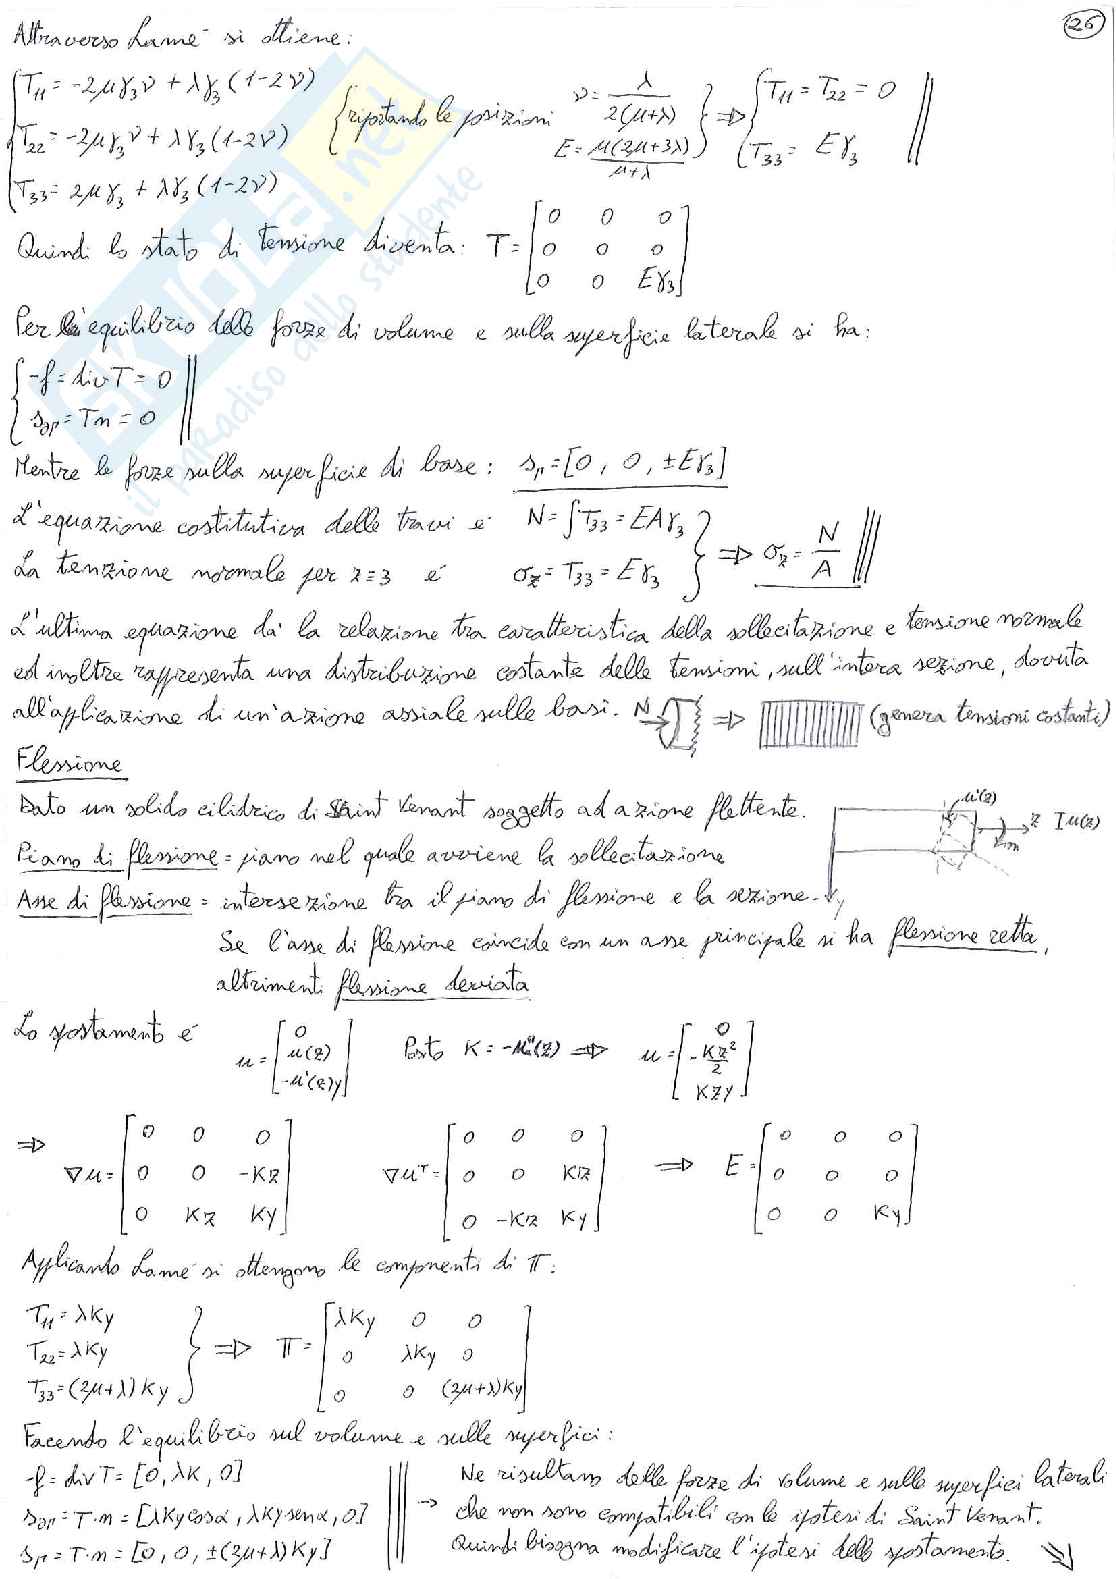 26
Attraverso Lamé si ottiene:
T₁₁ = -2μγ₃ν + λγ₃(1-2ν)
T₂₂ = -2μγ₃ν + λγ₃(1-2ν)
T₃₃ = 2μγ₃ + λγ₃(1-2ν)
{riportando le posizioni ν = λ/2(μ+λ) E = μ(2μ+3λ)/μ+λ} ⇒ {T₁₁ = T₂₂ = 0 T₃₃ = Eγ₃
Quindi lo stato di tensione diventa: T = [0 0 0
0 0 0
0 0 Eγ₃]
Per l'equilibrio delle forze di volume e sulla superficie laterale si ha:
-f = divT = 0
s∂p = Tn = 0
Mentre le forze sulla superficie di base: sp = [0, 0, ±Eγ₃]
L'equazione costitutiva delle travi è N = ∫T₃₃ = EAγ₃
La tenzione normale per z≡3 è σz = T₃₃ = Eγ₃ } ⇒ σz = N/A
L'ultima equazione dà la relazione tra caratteristica della sollecitazione e tensione normale
ed inoltre rappresenta una distribuzione costante delle tensioni, sull'intera sezione, dovuta
all'applicazione di un'azione assiale sulle basi. N ⇒ (genera tensioni costanti)
Flessione
Dato un solido cilidrico di Saint Venant soggetto ad azione flettente.
u'(z) z u(z) m y
Piano di flessione = piano nel quale avviene la sollecitazione
Asse di flessione = intersezione tra il piano di flessione e la sezione.
Se l'asse di flessione coincide con un asse principale si ha flessione retta,
altrimenti flessione deviata
Lo spostamento è u = [0
u(z)
-u'(z)y] Posto K = -u''(z) ⇒ u = [0
-Kz²/2
Kzy]
⇒ ∇u = [0 0 0
0 0 -Kz
0 Kz Ky] ∇uᵀ = [0 0 0
0 0 Kz
0 -Kz Ky] ⇒ E = [0 0 0
0 0 0
0 0 Ky]
Applicando Lamé si ottengono le componenti di T:
T₁₁ = λKy
T₂₂ = λKy
T₃₃ = (2μ+λ)Ky } ⇒ T = [λKy 0 0
0 λKy 0
0 0 (2μ+λ)Ky]
Facendo l'equilibrio sul volume e sulle superfici:
-f = divT = [0, λK, 0]
s∂p = T·n = [λKycosα, λKysenα, 0]
sp = T·n = [0, 0, ±(2μ+λ)Ky]
→ Ne risultano delle forze di volume e sulle superfici laterali
che non sono compatibili con le ipotesi di Saint Venant.
Quindi bisogna modificare l'ipotesi dello spostamento.
SKUOLA.net
il paradiso dello studente